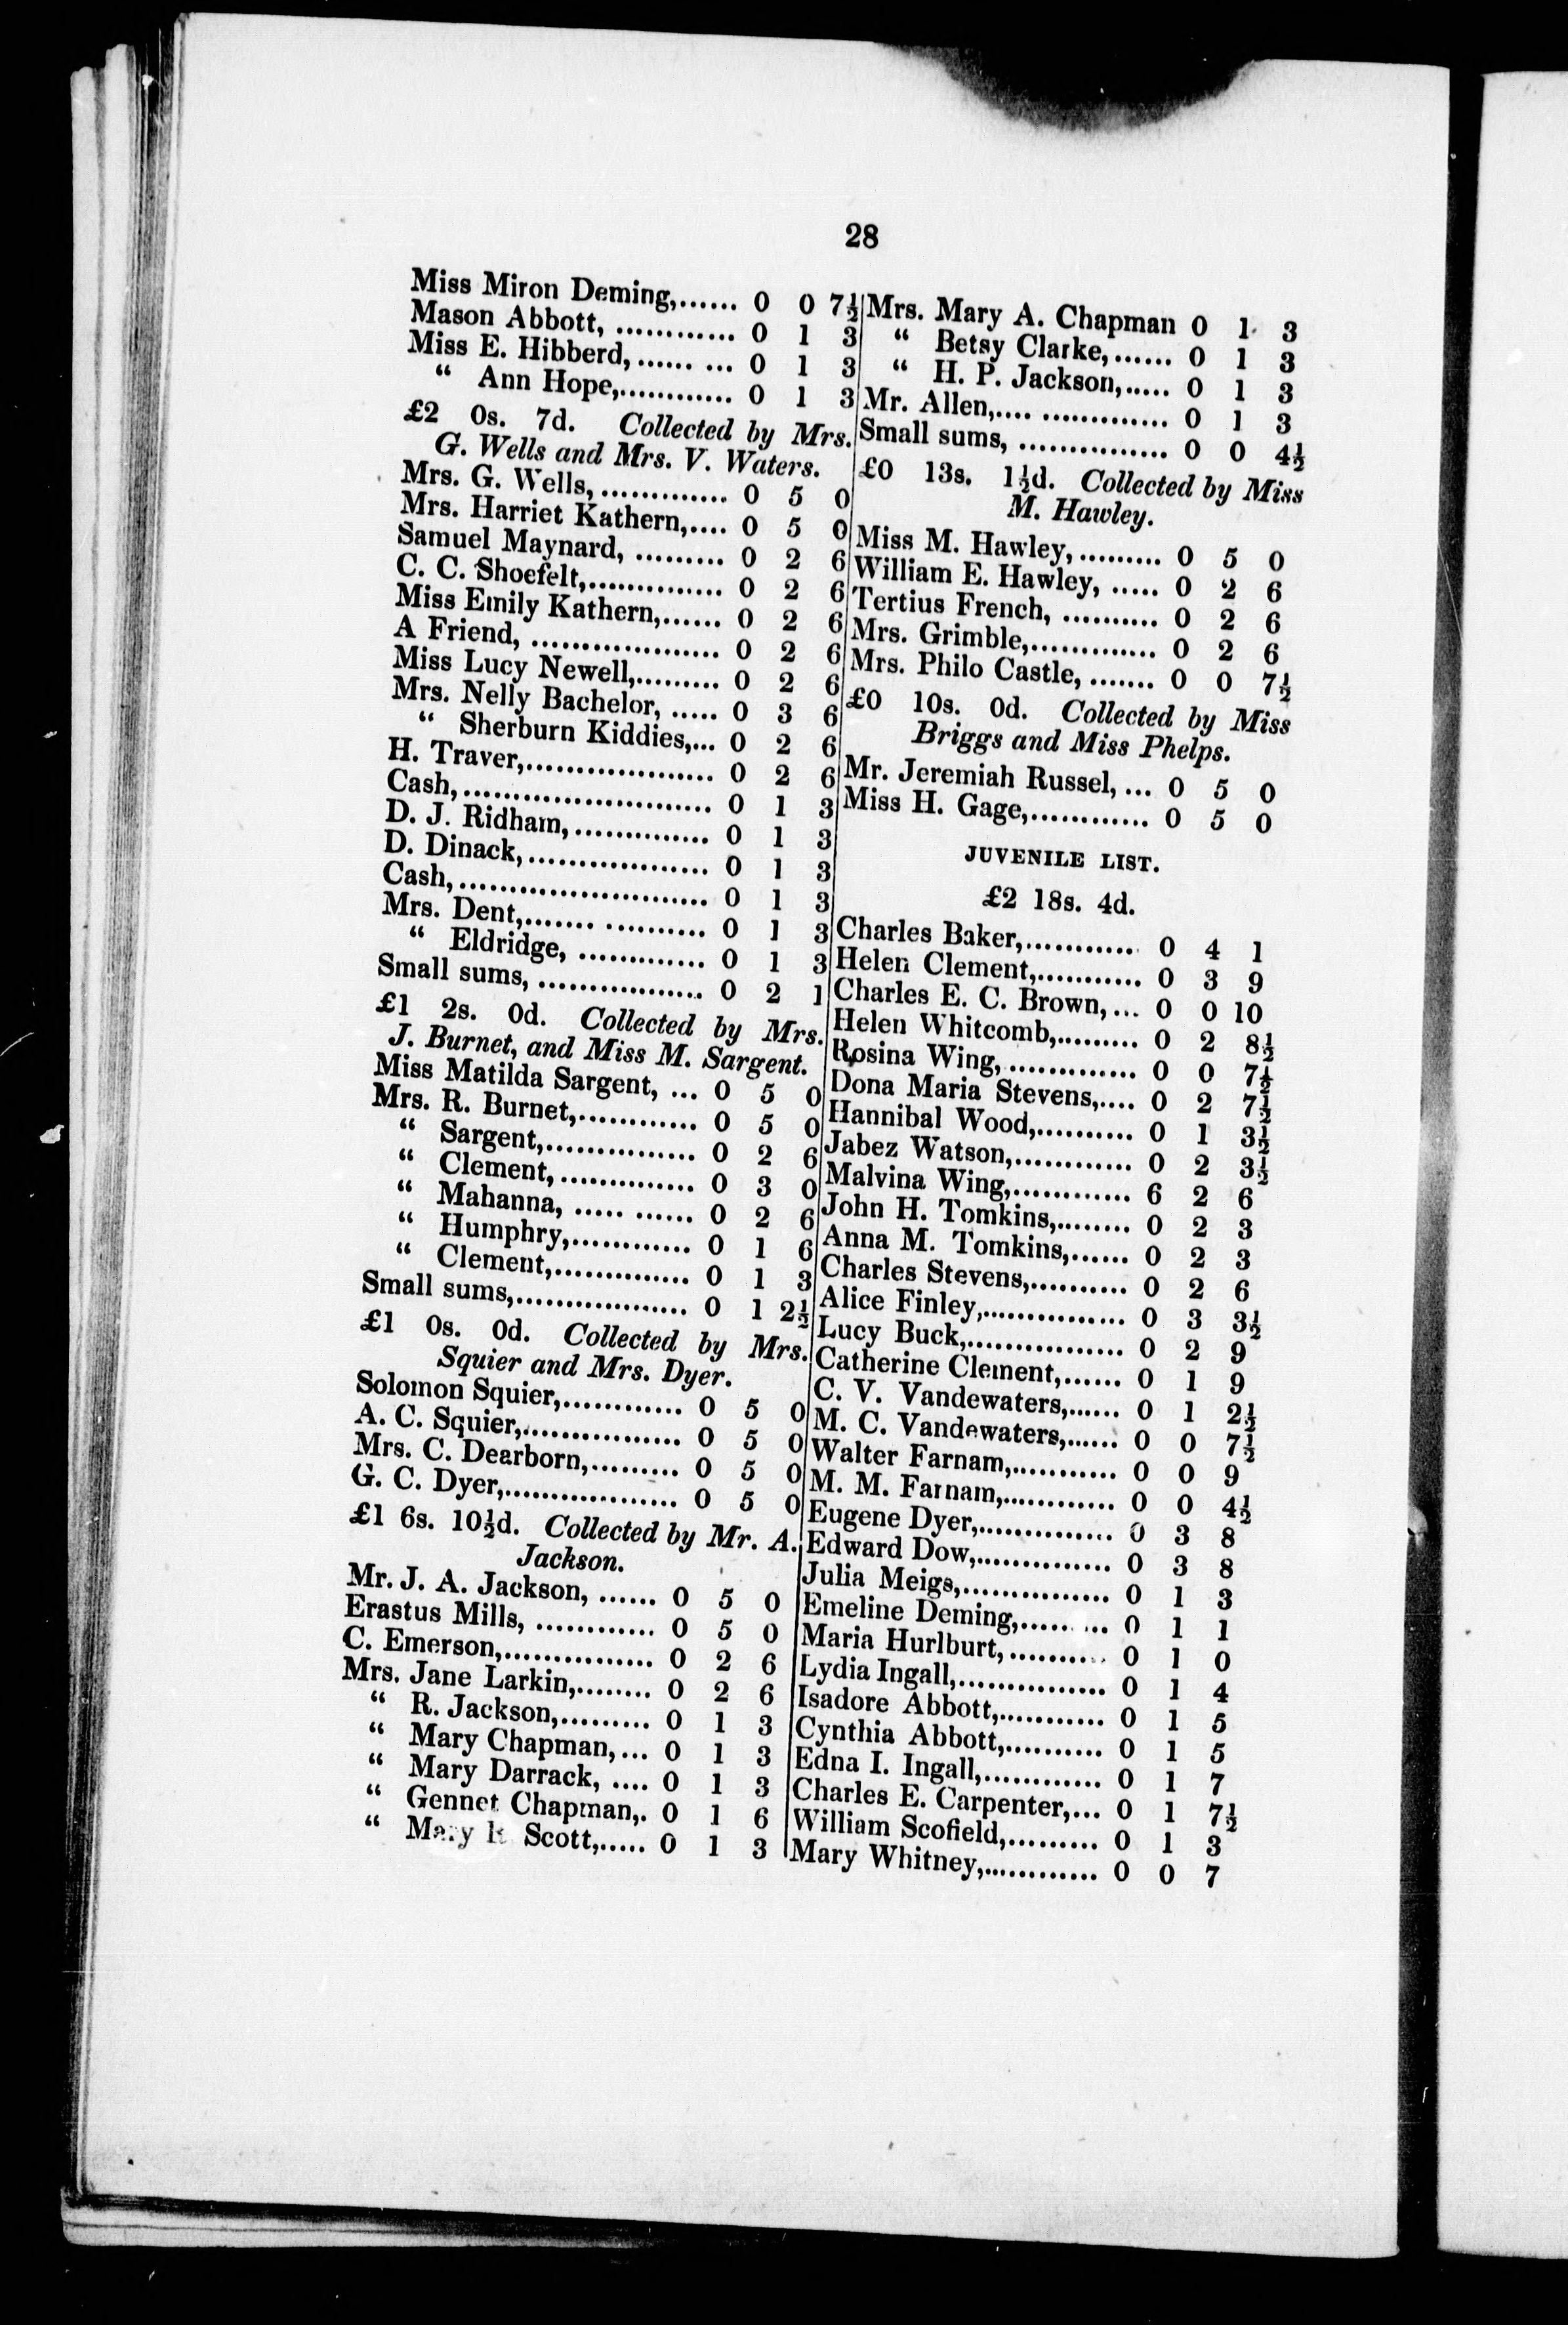 28
Miss Miron Deming,...... 0 0 7½
Mason Abbott, ............. 0 1 3
Miss E. Hibberd,...... ... 0 1 3
“ Ann Hope,............ 0 1 3
£2 0s. 7d. Collected by Mrs.
G. Wells and Mrs. V. Waters.
Mrs. G. Wells,.............. 0 5 0
Mrs. Harriet Kathern,.... 0 5 0
Samuel Maynard, .......... 0 2 6
C. C. Shoefelt,............... 0 2 6
Miss Emily Kathern,...... 0 2 6
A Friend, ..................... 0 2 6
Miss Lucy Newell,......... 0 2 6
Mrs. Nelly Bachelor, ..... 0 3 6
“ Sherburn Kiddies,... 0 2 6
H. Traver,.................... 0 2 6
Cash,........................... 0 1 3
D. J. Ridham,............... 0 1 3
D. Dinack,.................... 0 1 3
Cash,........................... 0 1 3
Mrs. Dent,........ ........... 0 1 3
“ Eldridge, .............. 0 1 3
Small sums, .................. 0 2 1
£1 2s. 0d. Collected by Mrs.
J. Burnet, and Miss M. Sargent.
Miss Matilda Sargent, ... 0 5 0
Mrs. R. Burnet,............. 0 5 0
“ Sargent,................ 0 2 6
“ Clement,............... 0 3 0
“ Mahanna, ..... ...... 0 2 6
“ Humphry,............. 0 1 6
“ Clement,............... 0 1 3
Small sums,................... 0 1 2½
£1 0s. 0d. Collected by Mrs.
Squier and Mrs. Dyer.
Solomon Squier,............. 0 5 0
A. C. Squier,................. 0 5 0
Mrs. C. Dearborn,.......... 0 5 0
G. C. Dyer,................... 0 5 0
£1 6s. 10½d. Collected by Mr. A.
Jackson.
Mr. J. A. Jackson, ...... 0 5 0
Erastus Mills, ............. 0 5 0
C. Emerson,................ 0 2 6
Mrs. Jane Larkin,........ 0 2 6
“ R. Jackson,.......... 0 1 3
“ Mary Chapman,... 0 1 3
“ Mary Darrack, .... 0 1 3
“ Gennet Chapman,. 0 1 6
“ Mary Scott,..... 0 1 3
Mrs. Mary A. Chapman 0 1 3
“ Betsy Clarke,...... 0 1 3
“ H. P. Jackson,..... 0 1 3
Mr. Allen,.... .............. 0 1 3
Small sums, ................ 0 0 4½
£0 13s. 1½d. Collected by Miss
M. Hawley.
Miss M. Hawley,......... 0 5 0
William E. Hawley, ..... 0 2 6
Tertius French, .......... 0 2 6
Mrs. Grimble,.............. 0 2 6
Mrs. Philo Castle, ....... 0 0 7½
£0 10s. 0d. Collected by Miss
Briggs and Miss Phelps.
Mr. Jeremiah Russel, ... 0 5 0
Miss H. Gage,............. 0 5 0
JUVENILE LIST.
£2 18s. 4d.
Charles Baker,............. 0 4 1
Helen Clement,............ 0 3 9
Charles E. C. Brown,... 0 0 10
Helen Whitcomb,......... 0 2 8½
Rosina Wing, .............. 0 0 7½
Dona Maria Stevens,.... 0 2 7½
Hannibal Wood,.......... 0 1 3½
Jabez Watson,............. 0 2 3½
Malvina Wing,............. 6 2 6
John H. Tomkins,........ 0 2 3
Anna M. Tomkins,...... 0 2 3
Charles Stevens,.......... 0 2 6
Alice Finley,............... 0 3 3½
Lucy Buck,................. 0 2 9
Catherine Clement,...... 0 1 9
C. V. Vandewaters,...... 0 1 2½
M. C. Vandewaters,...... 0 0 7½
Walter Farnam,........... 0 0 9
M. M. Farnam,............ 0 0 4½
Eugene Dyer,............... 0 3 8
Edward Dow,............... 0 3 8
Julia Meigs,................ 0 1 3
Emeline Deming,...... ... 0 1 1
Maria Hurlburt,........... 0 1 0
Lydia Ingall,................ 0 1 4
Isadore Abbott,............ 0 1 5
Cynthia Abbott,........... 0 1 5
Edna I. Ingall,............. 0 1 7
Charles E. Carpenter,... 0 1 7½
William Scofield,.......... 0 1 3
Mary Whitney,............. 0 0 7